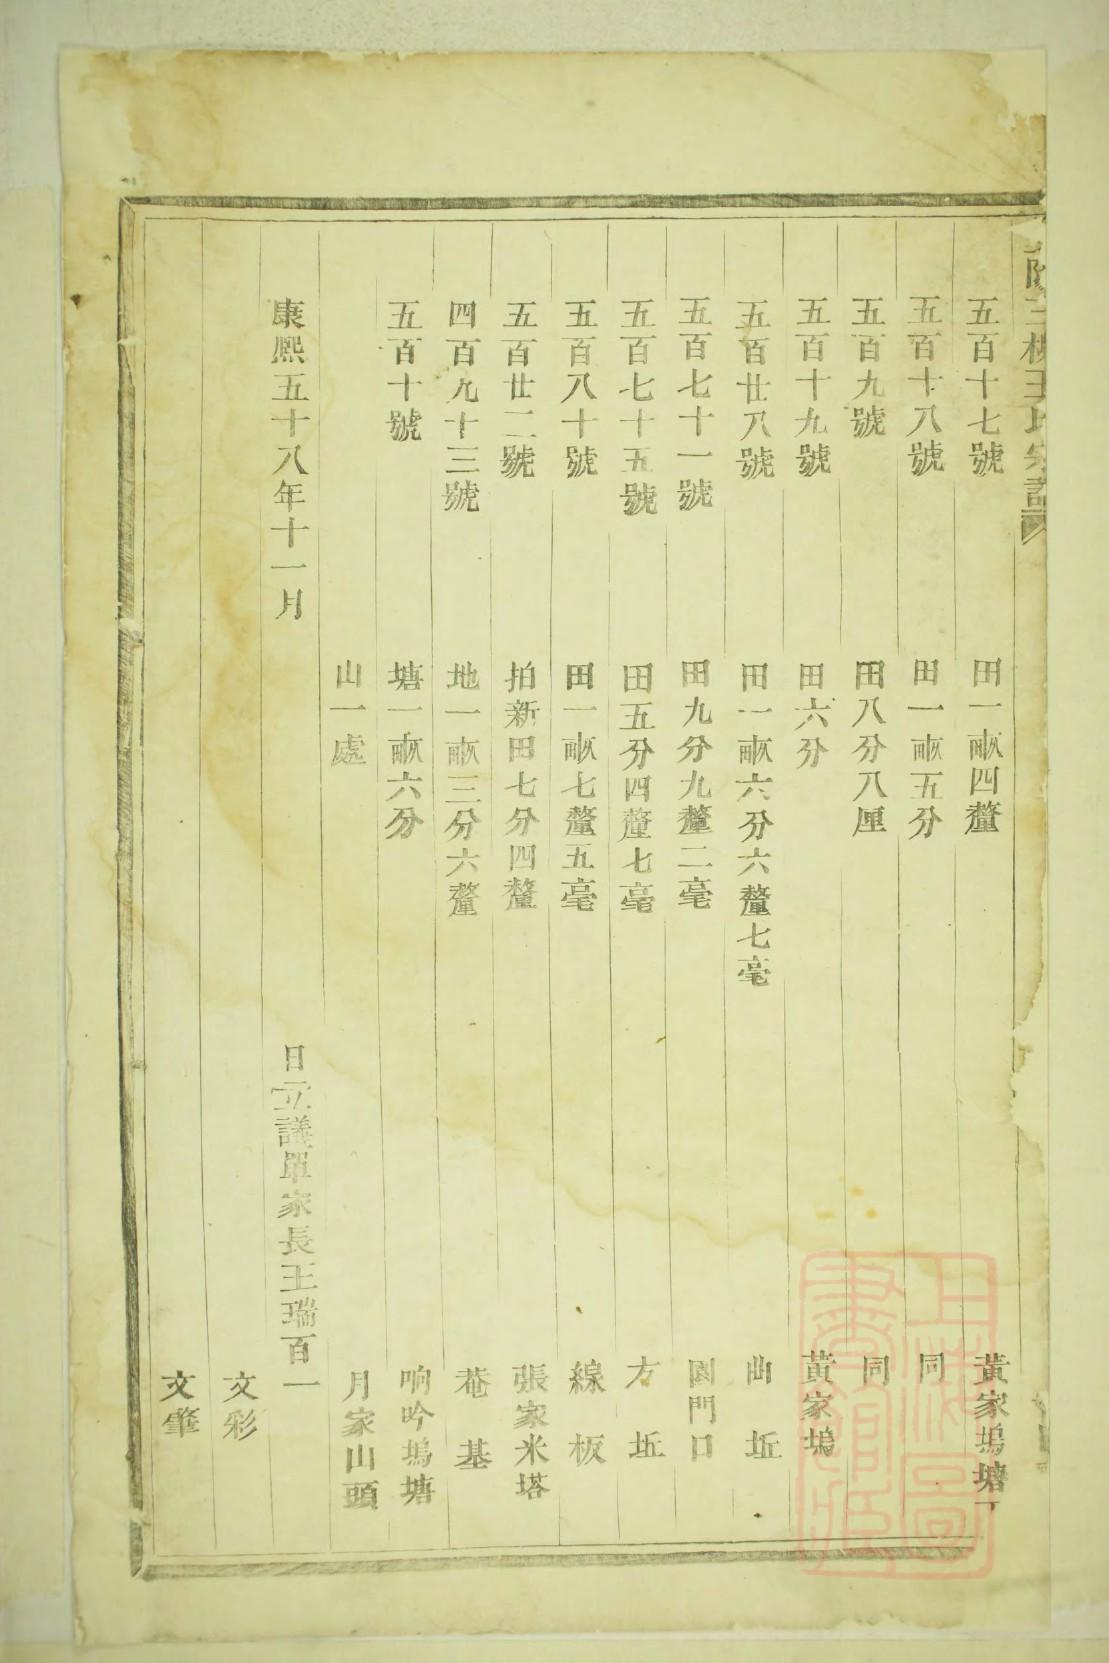 五百十七號 田一畝四釐 黃家塢塘下
五百十八號 田一畝五分 同
五百九號 田八分八厘 同
五百十九號 田六分 黃家塢
五百廿八號 田一畝六分六釐七毫 山坵
五百七十一號 田九分九釐二毫 園門口
五百七十五號 田五分四釐七毫 方坵
五百八十號 田一畝七釐五毫 線板
五百廿二號 拍新田七分四釐 張家米塔
四百九十三號 地一畝三分六釐 菴基
五百十號 塘一畝六分 响吟塢塘
山一處 月家山頭
康熙五十八年十一月 日立議單家長王瑞百一
文彩
文肇
上海圖書館藏